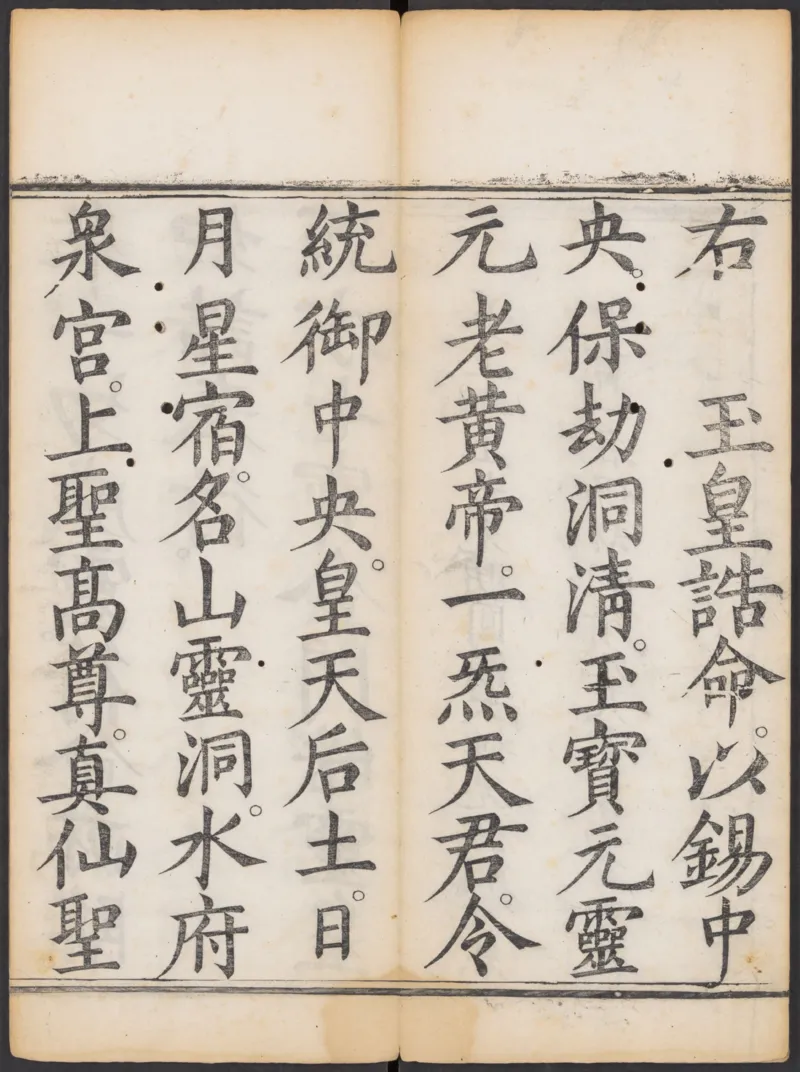 右　玉皇誥命。以錫中
央。保劫洞清。玉寶元靈
元老黄帝。一炁天君。令
統御中央。皇天后土。日
月星宿。名山靈洞。水府
泉宮。上聖髙尊。真仙聖